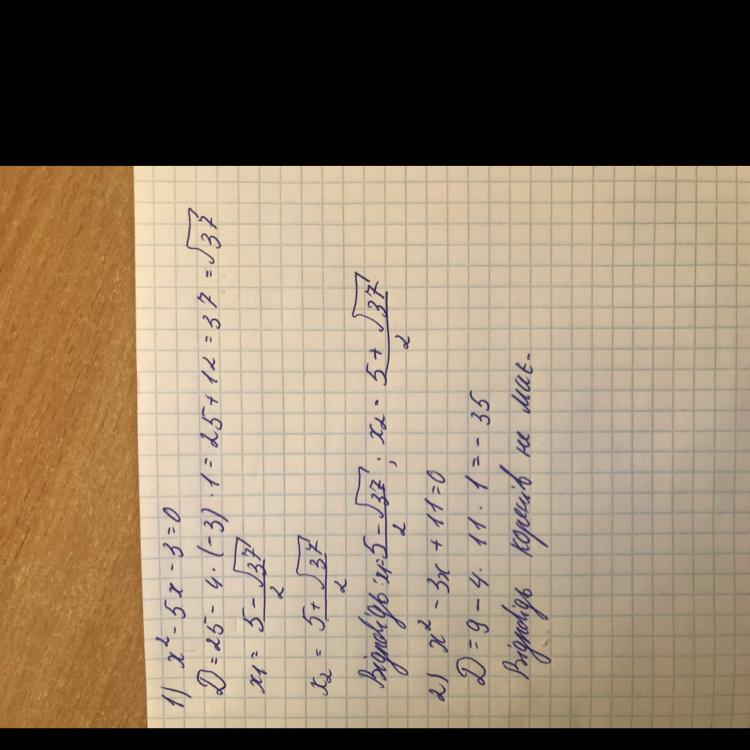 1) x² - 5x - 3 = 0
D = 25 - 4 · (-3) · 1 = 25 + 12 = 37 = √37
x₁ = (5 - √37)/2
x₂ = (5 + √37)/2
Відповідь: x₁ = (5 - √37)/2 ; x₂ = (5 + √37)/2
2) x² - 3x + 11 = 0
D = 9 - 4 · 11 · 1 = - 35
Відповідь коренів не має.